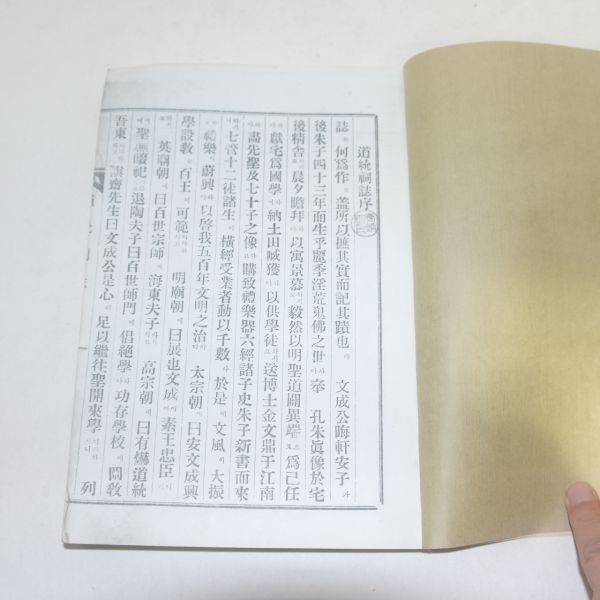 道統祠誌序
誌는何爲作고盖所以摭其實而記其蹟也라 文成公晦軒安子가
後朱子四十三年而生乎麗季淫荒鬼佛之世하야 奉 孔朱眞像於宅
後精舍하고晨夕瞻拜하야以寓景慕하고毅然以明聖道闢異端으로爲己任
하야獻宅爲國學하며納土田臧獲하야以供學徒하고送博士金文鼎于江南
하야畵先聖及七十子之像하고購致禮樂器六經諸子史朱子新書而來
하니七管十二徒諸生이橫經受業者動以千數라於是에文風이大振
하고禮樂이蔚興하야以啓我五百年文明之治하니 太宗朝에曰安文成興
學設敎는百王이可範이라하시고 明廟朝에曰展也文成이素王忠臣이라
英廟朝에曰百世宗師며海東夫子라하시고 高宗朝에曰有燁道統
聖廡啜祀라하시고退陶夫子曰百世師門에倡絶學하야功存學校며闢敎
吾東이라하시고謨齋先生曰文成公是心이足以繼往聖開來學이라하시니列